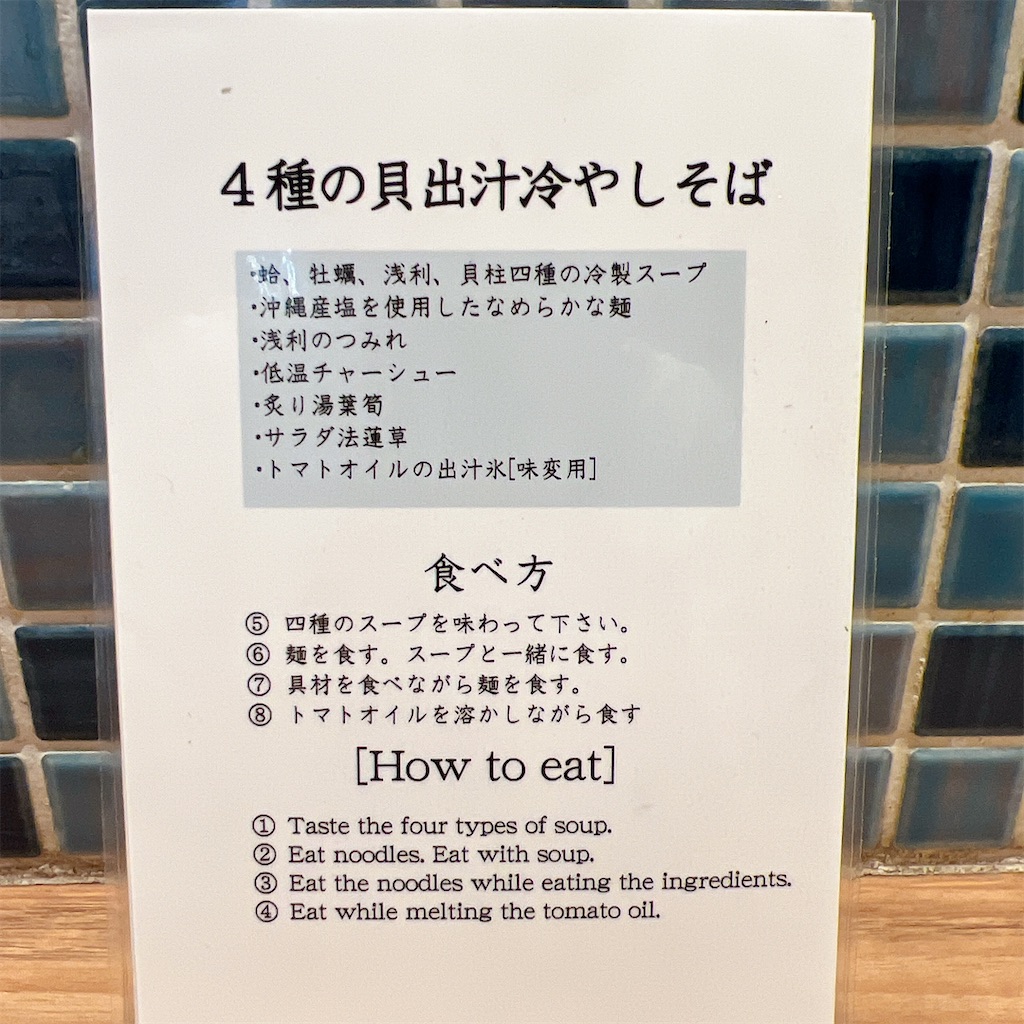 ４種の貝出汁冷やしそば
・蛤、牡蠣、浅利、貝柱四種の冷製スープ
・沖縄産塩を使用したなめらかな麺
・浅利のつみれ
・低温チャーシュー
・炙り湯葉筍
・サラダ法蓮草
・トマトオイルの出汁氷[味変用]
食べ方
⑤ 四種のスープを味わって下さい。
⑥ 麺を食す。スープと一緒に食す。
⑦ 具材を食べながら麺を食す。
⑧ トマトオイルを溶かしながら食す
[How to eat]
① Taste the four types of soup.
② Eat noodles. Eat with soup.
③ Eat the noodles while eating the ingredients.
④ Eat while melting the tomato oil.